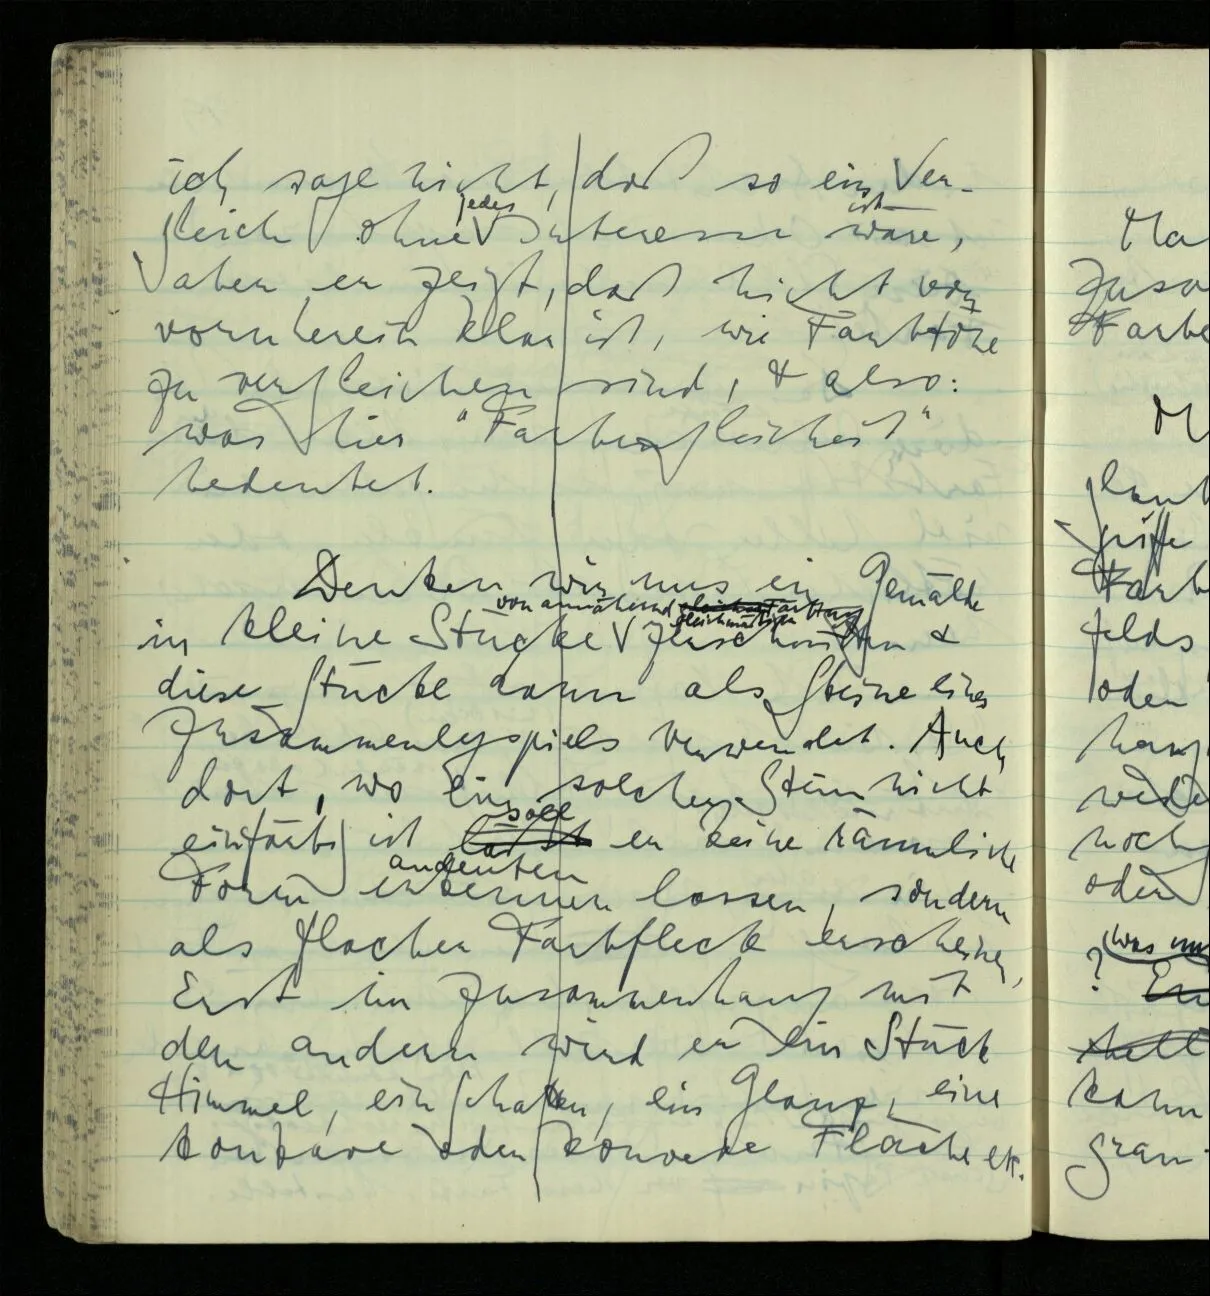 ich sage nicht, daß so ein Ver-
jedes ist
gleich ohne Interesse wäre,
aber er zeigt, daß nicht von
vornherein klar ist, wie Farbtöne
zu vergleichen sind, & also:
was hier "Farbengleichheit"
bedeutet.
Denken wir uns ein Gemälde
von annähernd gleicher Färbung
gleichmäßigen
in kleine Stücke zerschnitten &
diese Stücke dann als Steine eines
Zusammenlegspiels verwendet. Auch
dort, wo ein solcher Stein nicht
soll
einfärbig ist läßt er keine räumliche
andeuten
Form erkennen lassen, sondern
als flacher Farbfleck erscheinen,
Erst im Zusammenhang mit
den andern wird er ein Stück
Himmel, ein Schatten, ein Glanz, eine
konkave oder konvexe Fläche etc.
Ma
Zusa
Farbe
M
glaub
griffe
Farb
felds
oder
weder
noch
oder
was
?
kann
grau-